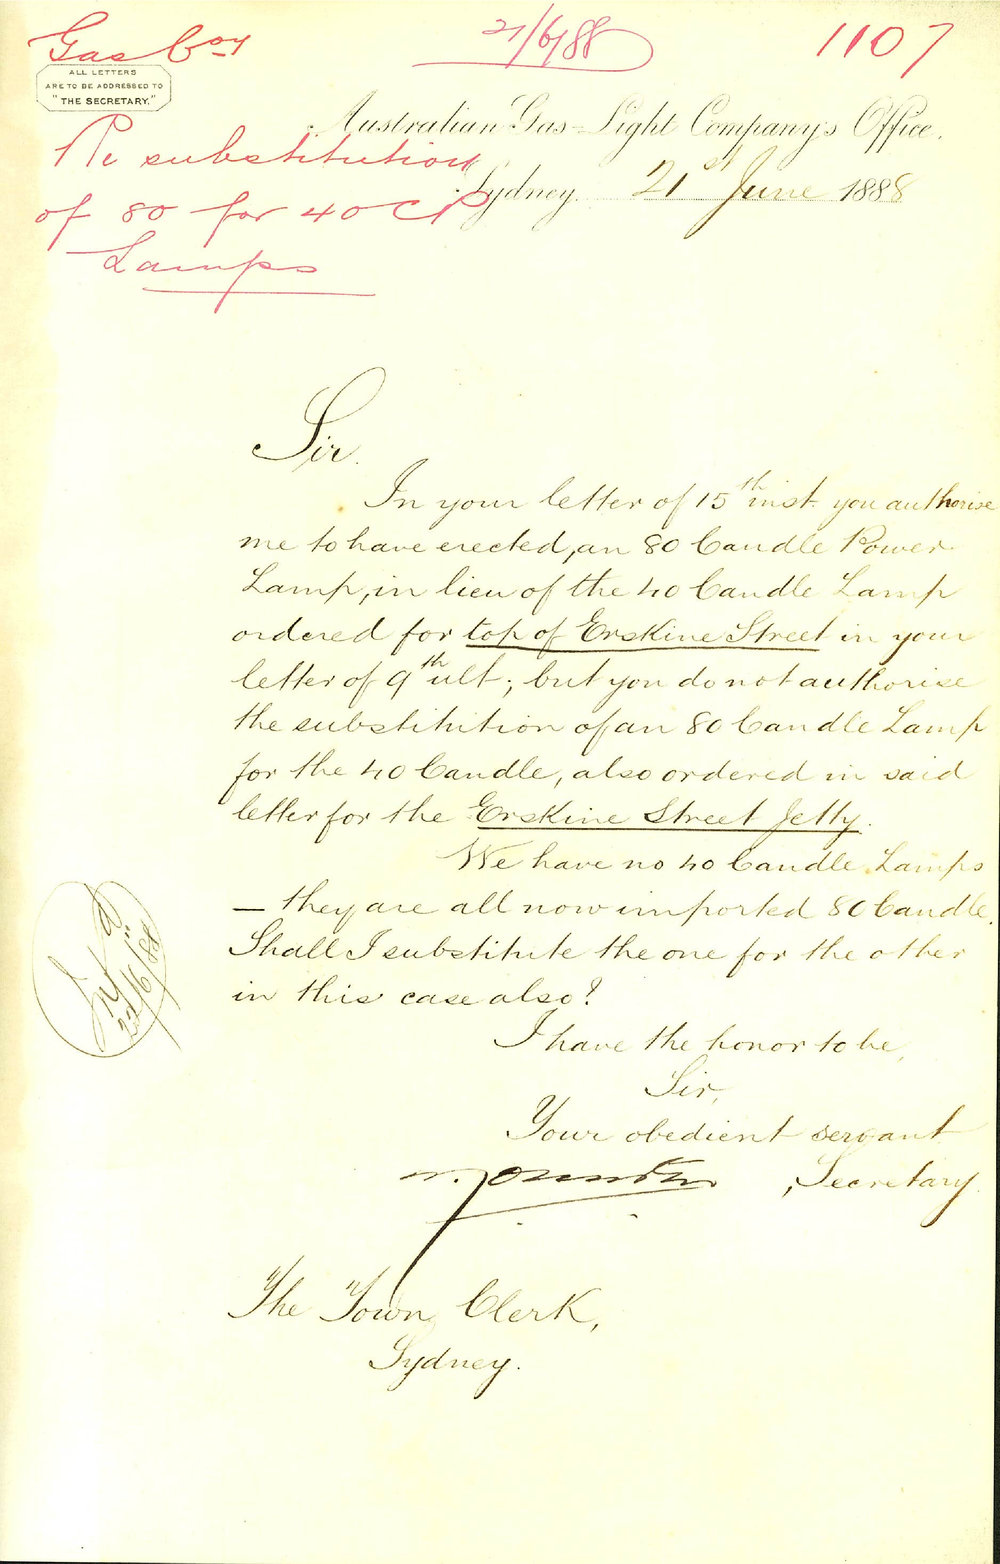 Gas Coy
21/6/88
1107
ALL LETTERS
ARE TO BE ADDRESSED TO
"THE SECRETARY."
Australian Gas-Light Company's Office.
Re substitution
Sydney. 21st June 1888
of 80 for 40 CP
Lamps
Sir.
In your letter of 15th inst. you authorise
me to have erected, an 80 Candle Power
Lamp, in lieu of the 40 Candle Lamp
ordered for top of Erskine Street in your
letter of 9th ult; but you do not authorise
the substitution of an 80 Candle Lamp
for the 40 Candle, also ordered in said
letter for the Erskine Street Jetty.
We have no 40 Candle Lamps
— they are all now imported 80 Candle.
Shall I substitute the one for the other
in this case also?
22/6/88
I have the honor to be,
Sir,
Your obedient servant
, Secretary
The Town Clerk,
Sydney.